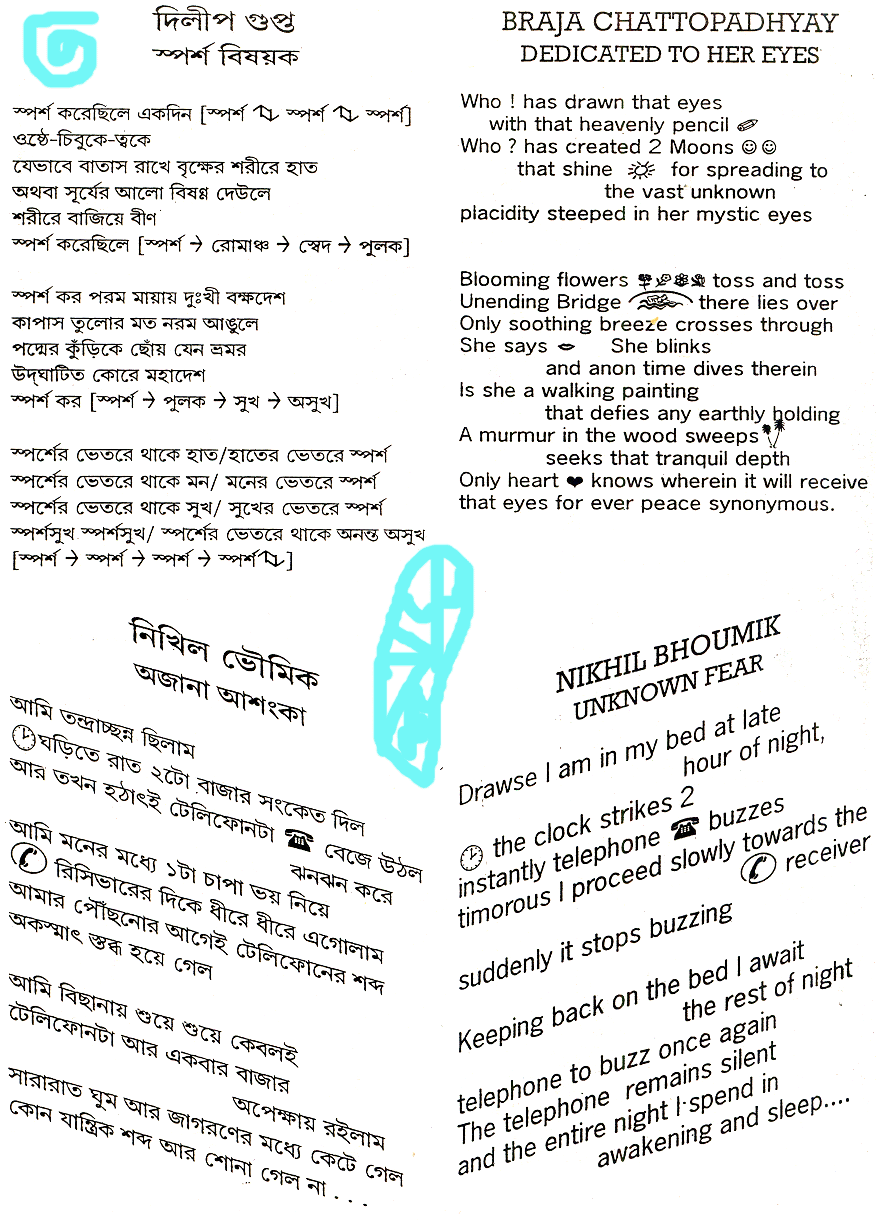 দিলীপ গুপ্ত
স্পর্শ বিষয়ক
স্পর্শ করেছিলে একদিন [স্পর্শ স্পর্শ স্পর্শ]
ওষ্ঠে-চিবুকে-ত্বকে
যেভাবে বাতাস রাখে বৃক্ষের শরীরে হাত
অথবা সূর্যের আলো বিষণ্ণ দেউলে
শরীরে বাজিয়ে বীণ
স্পর্শ করেছিলে [স্পর্শ → রোমাঞ্চ → স্বেদ → পুলক]
স্পর্শ কর পরম মায়ায় দুঃখী বক্ষদেশ
কাপাস তুলোর মত নরম আঙুলে
পদ্মের কুঁড়িকে ছোঁয় যেন ভ্রমর
উদ্‌ঘাটিত কোরে মহাদেশ
স্পর্শ কর [স্পর্শ → পুলক → সুখ → অসুখ]
স্পর্শের ভেতরে থাকে হাত/হাতের ভেতরে স্পর্শ
স্পর্শের ভেতরে থাকে মন/ মনের ভেতরে স্পর্শ
স্পর্শের ভেতরে থাকে সুখ/ সুখের ভেতরে স্পর্শ
স্পর্শসুখ স্পর্শসুখ/ স্পর্শের ভেতরে থাকে অনন্ত অসুখ
[স্পর্শ → স্পর্শ → স্পর্শ → স্পর্শ]
BRAJA CHATTOPADHYAY
DEDICATED TO HER EYES
Who ! has drawn that eyes
with that heavenly pencil
Who ? has created 2 Moons ☺☺
that shine for spreading to
the vast unknown
placidity steeped in her mystic eyes
Blooming flowers toss and toss
Unending Bridge there lies over
Only soothing breeze crosses through
She says She blinks
and anon time dives therein
Is she a walking painting
that defies any earthly holding
A murmur in the wood sweeps
seeks that tranquil depth
Only heart ❤ knows wherein it will receive
that eyes for ever peace synonymous.
নিখিল ভৌমিক
অজানা আশংকা
আমি তন্দ্রাচ্ছন্ন ছিলাম
ঘড়িতে রাত ২টো বাজার সংকেত দিল
আর তখন হঠাৎই টেলিফোনটা ☎ বেজে উঠল
ঝনঝন করে
আমি মনের মধ্যে ১টা চাপা ভয় নিয়ে
রিসিভারের দিকে ধীরে ধীরে এগোলাম
আমার পৌঁছনোর আগেই টেলিফোনের শব্দ
অকস্মাৎ স্তব্ধ হয়ে গেল
আমি বিছানায় শুয়ে শুয়ে কেবলই
টেলিফোনটা আর একবার বাজার
অপেক্ষায় রইলাম
সারারাত ঘুম আর জাগরণের মধ্যে কেটে গেল
কোন যান্ত্রিক শব্দ আর শোনা গেল না . . .
NIKHIL BHOUMIK
UNKNOWN FEAR
Drawse I am in my bed at late
hour of night,
the clock strikes 2
instantly telephone ☎ buzzes
timorous I proceed slowly towards the
receiver
suddenly it stops buzzing
Keeping back on the bed I await
the rest of night
telephone to buzz once again
The telephone remains silent
and the entire night I spend in
awakening and sleep....